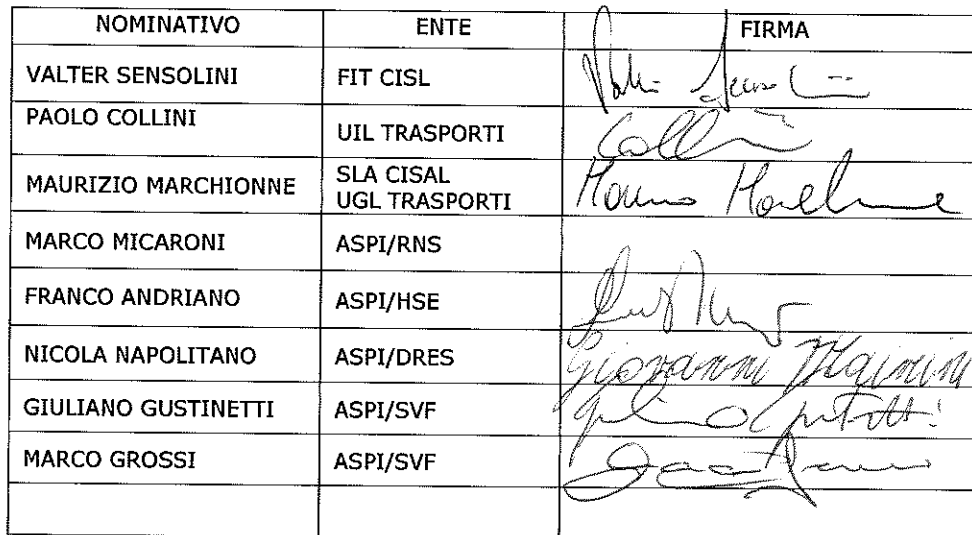 NOMINATIVO ENTE FIRMA
VALTER SENSOLINI FIT CISL
PAOLO COLLINI UIL TRASPORTI Collini
MAURIZIO MARCHIONNE SLA CISAL
UGL TRASPORTI
MARCO MICARONI ASPI/RNS
FRANCO ANDRIANO ASPI/HSE
NICOLA NAPOLITANO ASPI/DRES Giovanni Mainini
GIULIANO GUSTINETTI ASPI/SVF
MARCO GROSSI ASPI/SVF